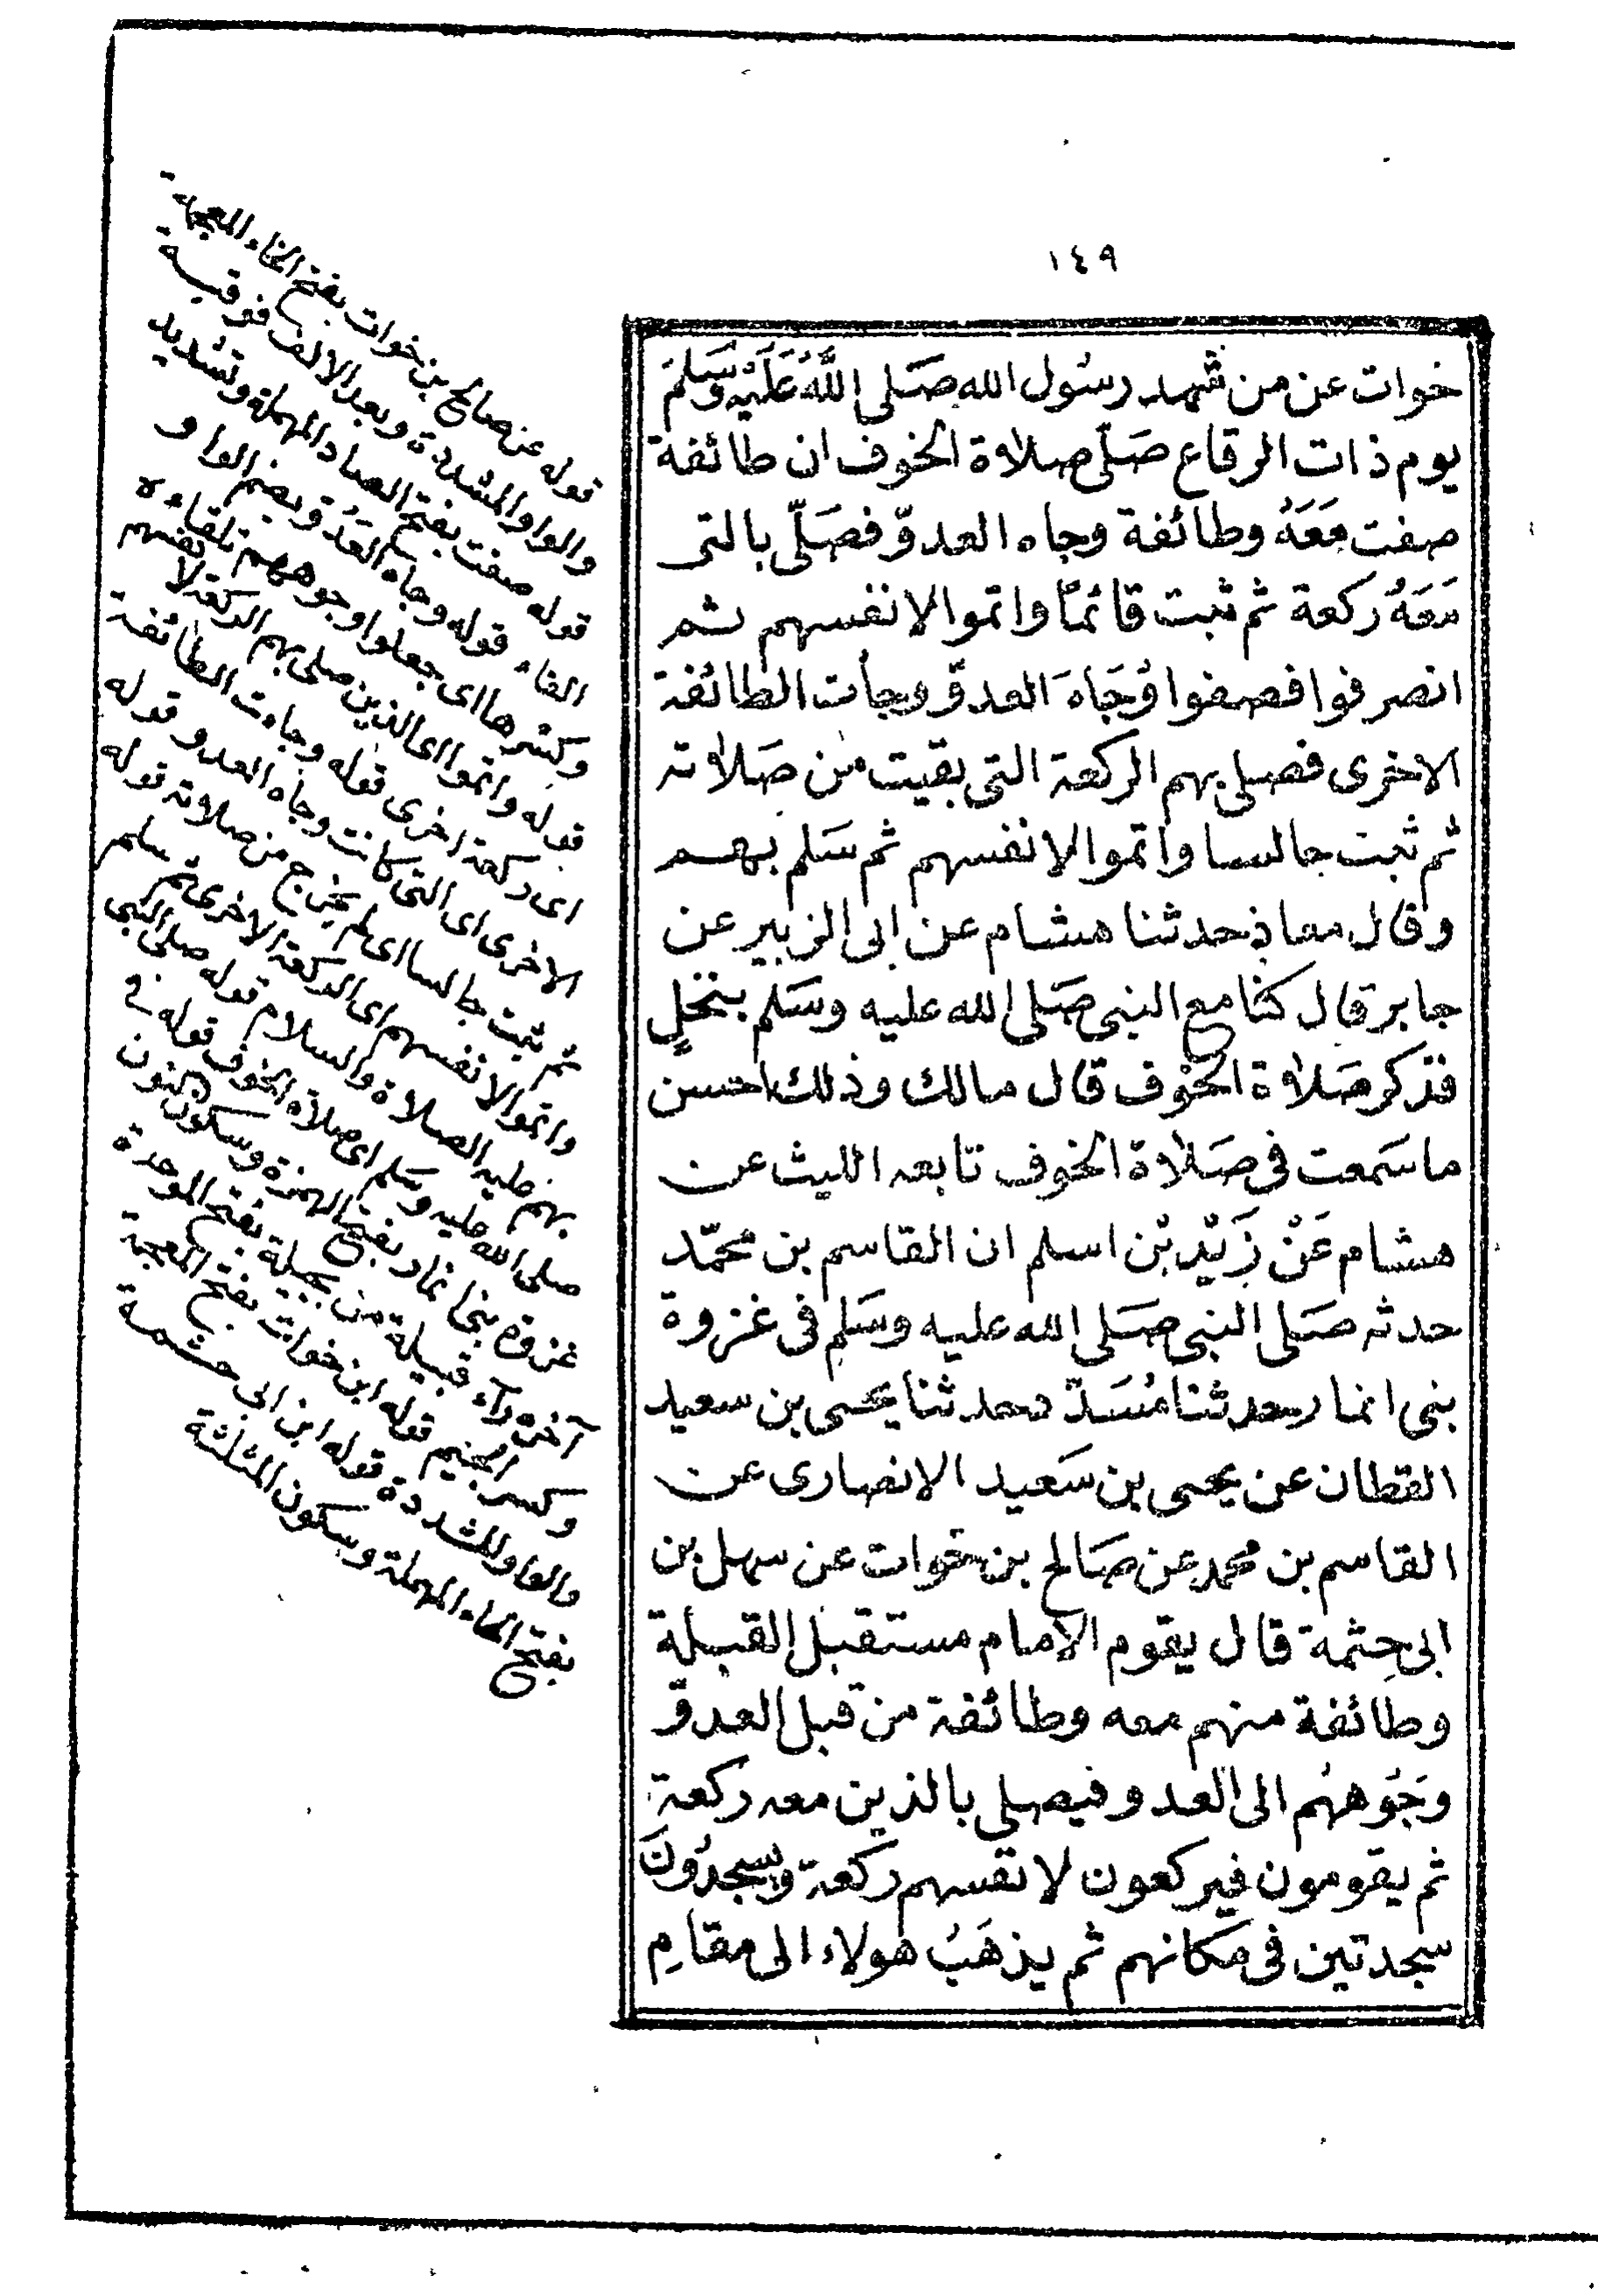 ١٤٩
خوات عن من شهد رسول الله صَلى اللهُ عَلَيْه وَسَلمَ
يوم ذات الرقاع صَلّى صلاة الخوف ان طائفة
صفت مَعَهُ وطائفة وجاه العدوّ فصَلّى بالتى
مَعَهُ ركعة ثم ثبت قائمًا واتموا لانفسهم ثم
انصرفوا فصفوا وُجَاهَ العدوّ وجأت الطائفة
الاخرى فصلى بهم الركعة التى بقيت من صَلاته
ثم ثبت جالسا واتموا لانفسهم ثم سَلم بهم
وقال معاذ حدثنا هشام عن ابى الزبير عن
جابر قال كنا مع النبى صَلى الله عليه وسَلم بنخلٍ
فذكر صَلاة الخوف قال مالك وذلك احسن
ما سَمعت فى صَلاة الخوف تابعه الليث عن
هشام عَنْ زَيْد بْن اسلم ان القاسم بن محمّد
حدثه صَلى النبى صَلى الله عليه وسَلم فى غزوة
بنى انمار حدثنا مُسَدّد حدثنا يحيى بن سعيد
القطان عن يحيى بن سَعيد الانصارى عن
القاسم بن محمد عن صَالح بن خوات عن سهل بن
ابى حِثمة قال يقوم الامام مستقبل القبلة
وطائفة منهم معه وطائفة من قبل العدوّ
وجُوههُم الى العدو فيصلى بالذين معه ركعة
ثم يقومون فيركعون لانفسهم ركعة ويسجدُونَ
سجدتين فى مكانهم ثم يذهَبُ هولاء الى مقامِ
قوله عن صالح بن خوات بفتح الخاء المعجمة
والواو المشددة وبعد الالف فوقية
قوله صفت بفتح الصاد المهملة وتشديد
الفاء قوله وجاه العدُوّ بضم الواو و
وكسرها اى جعلوا وجوههم تلقاءه
قوله واتموا اى الذين صلى بهم الركعة لانفسهم
اى ركعة اخرى قوله وجاءت الطائفة
الاخرى اى التى كانت وجاه العدو قوله
ثم ثبت جالسا اى لم يخرج من صلاته قوله
واتموا لانفسهم اى الركعة الاخرى ثم سلم
بهم عليه الصلاة والسلام قوله صلى النبى
صلى الله عليه وسلم اى صلاة الخوف قوله فى
غزوة بنى انمار بفتح الهمزة وسكون النون
آخره رآء قبيلة من بجيلة بفتح الموحدة
وكسر الجيم قوله ابن خوات بفتح المعجمة
والواو المشددة قوله ابن ابى حشمة
بفتح الحاء المهملة وسكون المثلثة